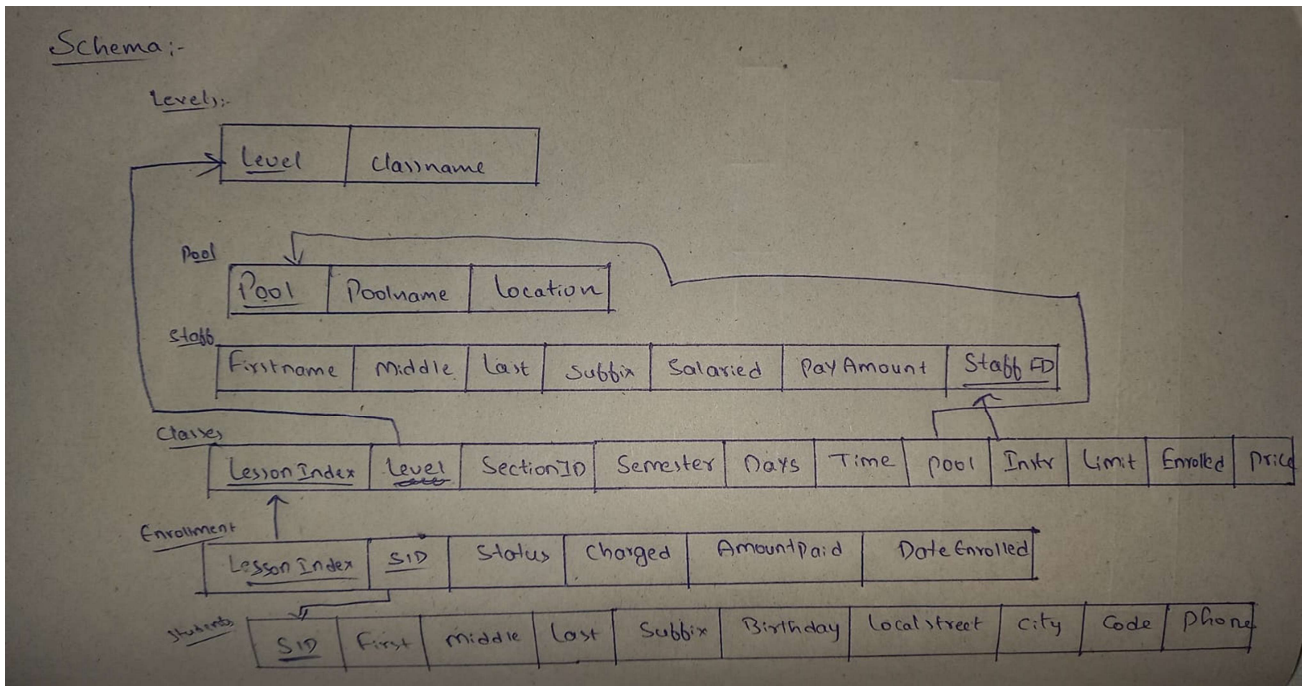 Schema:-
Levels:-
Level Classname
Pool
Pool Poolname Location
Staff
Firstname Middle Last Suffix Salaried PayAmount Staff ID
Classes
Lesson Index Level SectionID Semester Days Time Pool Instr Limit Enrolled Price
Enrollment
Lesson Index SID Status Charged Amountpaid Date Enrolled
Students
SID First Middle Last Suffix Birthday Local street City Code Phone